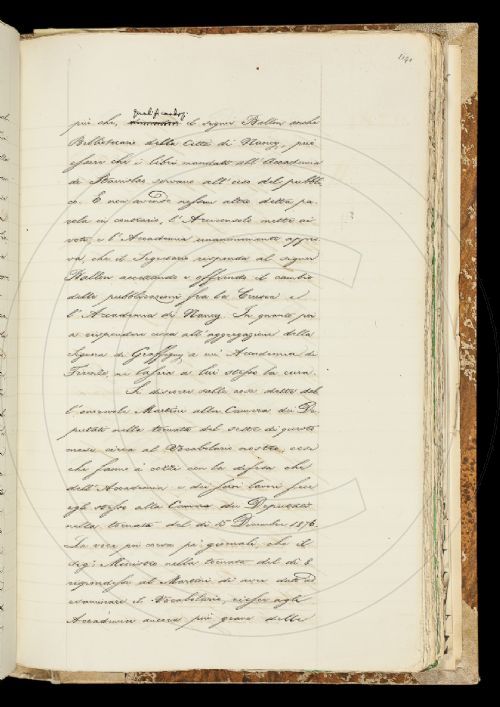 qualificandosi
più che, il signor Ballon anche
Bibliotecario della Città di Nancy, può
essere che i libri mandati all'Accademia
di Stanislas servano all'uso del pubbli-
co. E non avendo nessun altro detto pa-
rola in contrario, l'Arciconsolo mette ai
voti, e l'Accademia unanimemente appro-
va, che il Segretario risponda al signor
Ballon accettando e offrendo il cambio
delle pubblicazioni fra la Crusca e
l'Accademia di Nancy. In quanto poi
a rispondere circa all'aggregazione della
signora di Graffigny a un'Accademia di
Firenze ne lascia a lui stesso la cura.
Si discorre delle cose dette dal
l'onorevole Martini alla Camera dei De-
putati nella tornata del sette di questo
mese circa al Vocabolario nostro, cose
che fanno a cozzi con la difesa che
dell'Accademia e dei suoi lavori fece
egli stesso alla Camera dei Deputati
nella tornata del dì 15 Dicembre 1876.
La voce poi corsa pe' giornali, che il
sig.r Ministro nella tornata del dì 8
rispondesse al Martini di aver dato ad
esaminare il Vocabolario, riesce agli
Accademici ancora più grave delle